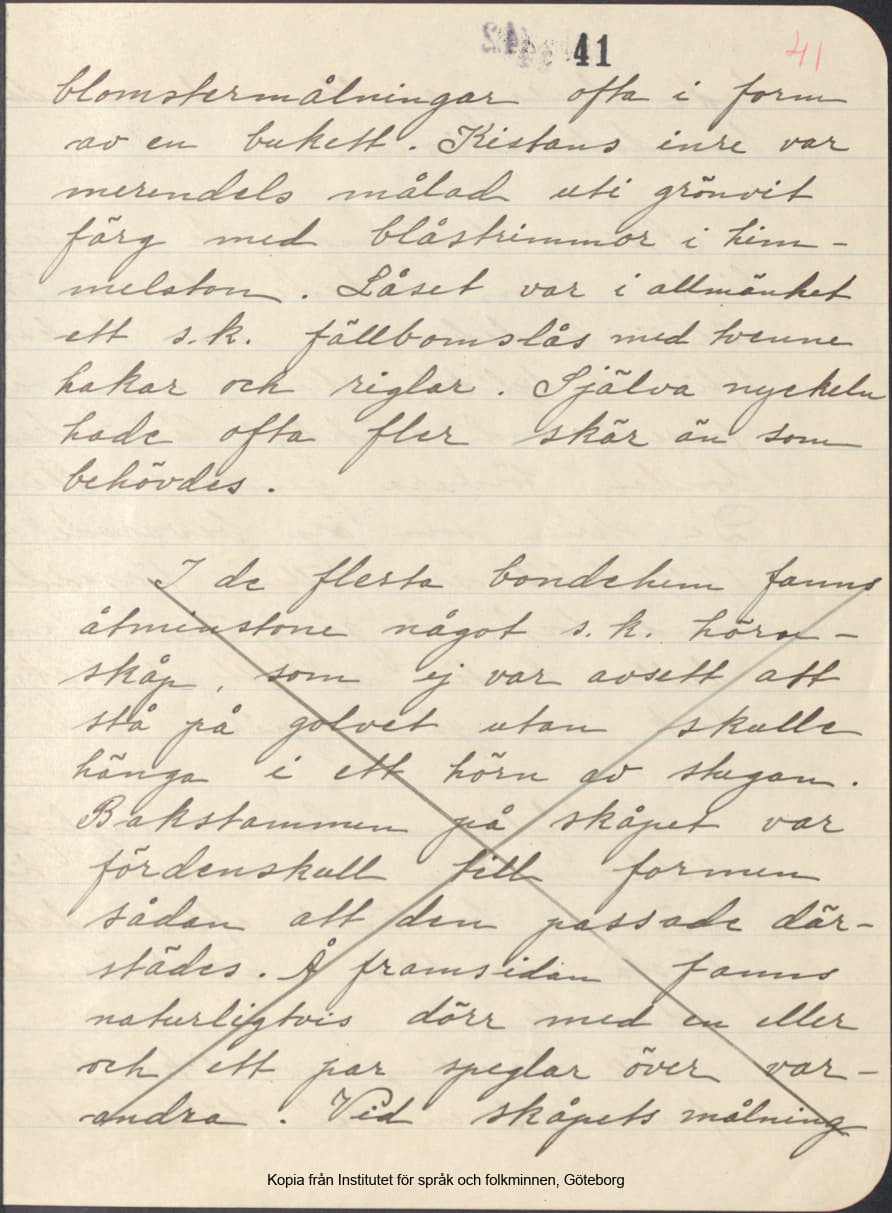 41
41
blomstermålningar ofta i form
av en bukett. Kistans inre var
merendels målad uti grönvit
färg med blåstrimmor i him-
melston. Låset var i allmänhet
ett s.k. fällbomslås med tvenne
hakar och reglar. Själva nyckeln
hade ofta fler skär än som
behövdes.
I de flesta bondehem fanns
åtminstone något s.k. hörn-
skåp, som ej var avsett att
stå på golvet utan skulle
hänga i ett hörn av stugan.
Bakstammen på skåpet var
fördenskull till formen
sådan att den passade där-
städes. Å framsidan fanns
naturligtvis dörr med en eller
och ett par speglar över var-
andra. Vid skåpets målning
Kopia från Institutet för språk och folkminnen, Göteborg